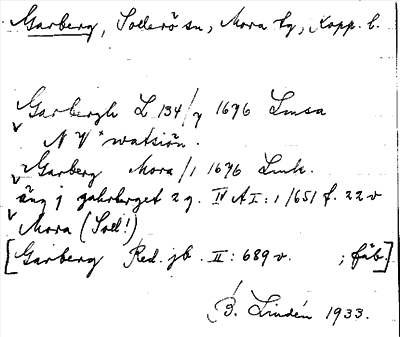 Garberg, Sollerö sn, Mora tg, Kopp. l.
Garbergh L 134/7 1696 Lmsa
N V watsiön.
Garberg Mora/1 1696 Lmk.
äng j garberget 2 g. IV A I: 1/651 f. 22 v
Mora (Soll!)
[Garberg Red. jb. II: 689 v. ; fäb.]
B. Lindén 1933.